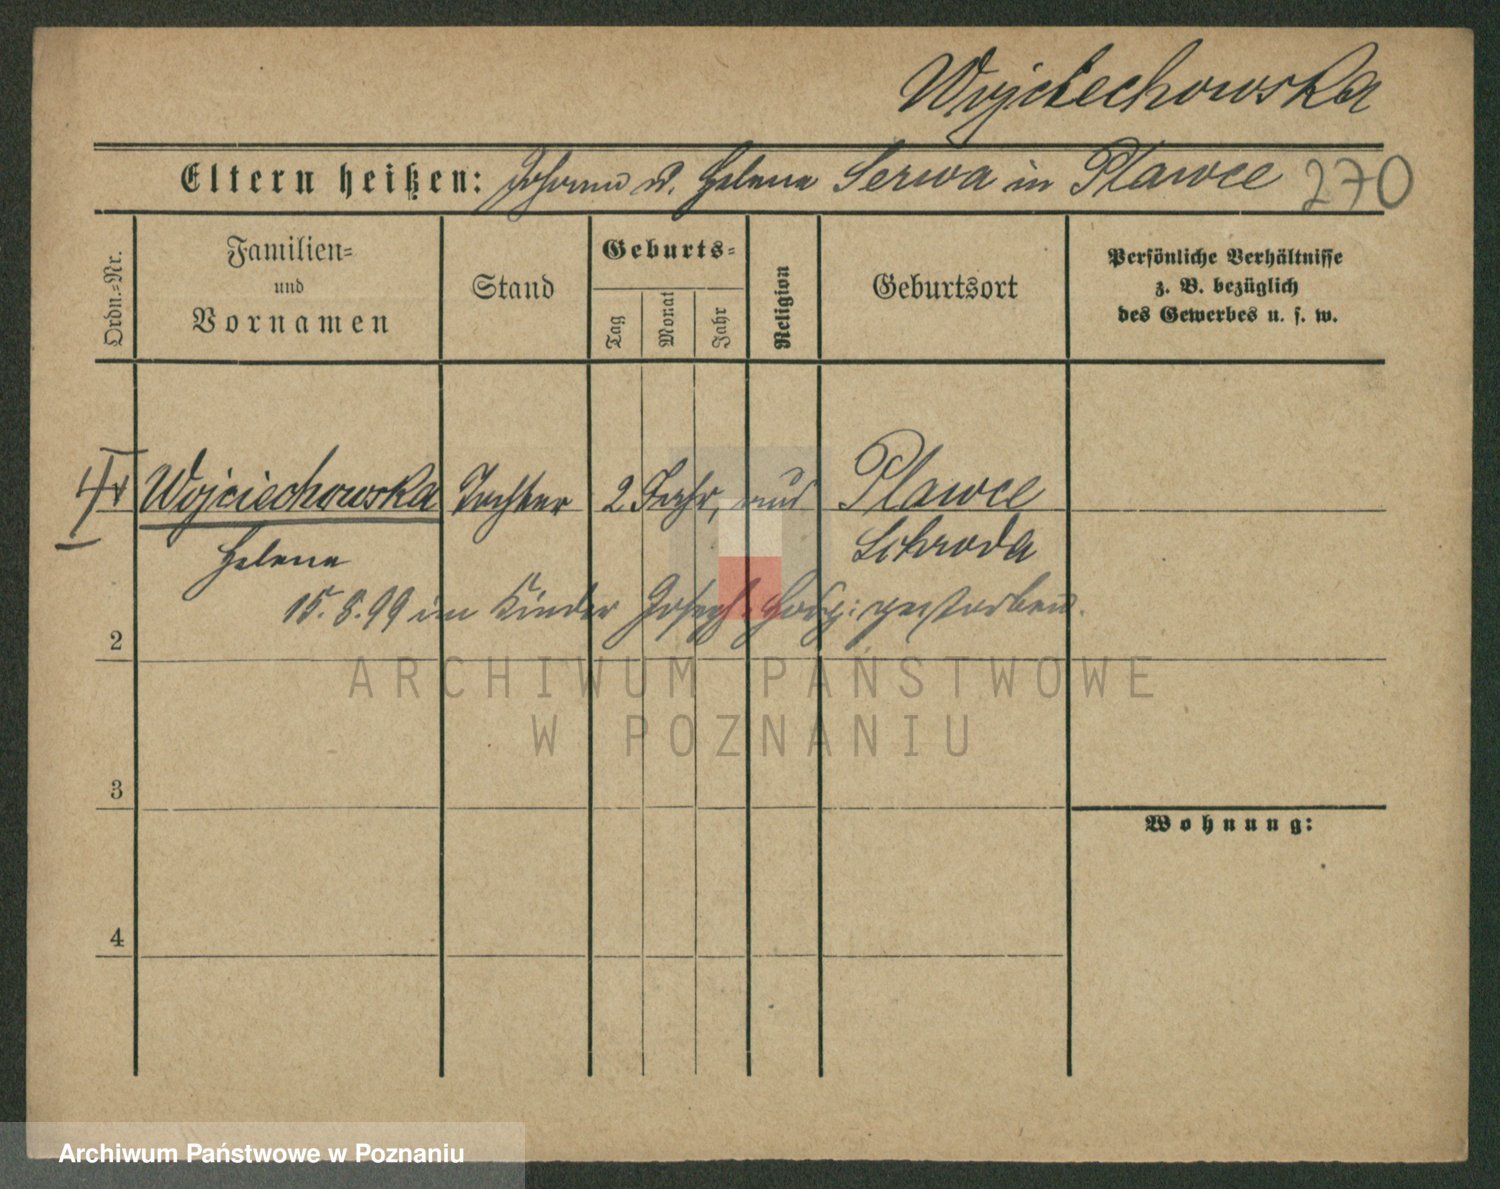 Wojciechowska
Eltern heißen: Johann u. Helena Serwa in Plawce 270
Ordn.-Nr.
Familien-
und
Vornamen
Stand
Geburts-
Tag
Monat
Jahr
Religion
Geburtsort
Persönliche Verhältnisse
z. B. bezüglich
des Gewerbes u. s. w.
Wojciechowska Tochter 2 Jahr, aus Plawce
Helena Schroda
15.8.99 im Kinder Joseph-Hosp: gestorben.
2
ARCHIWUM PAŃSTWOWE
W POZNANIU
3
Wohnung:
4
Archiwum Państwowe w Poznaniu